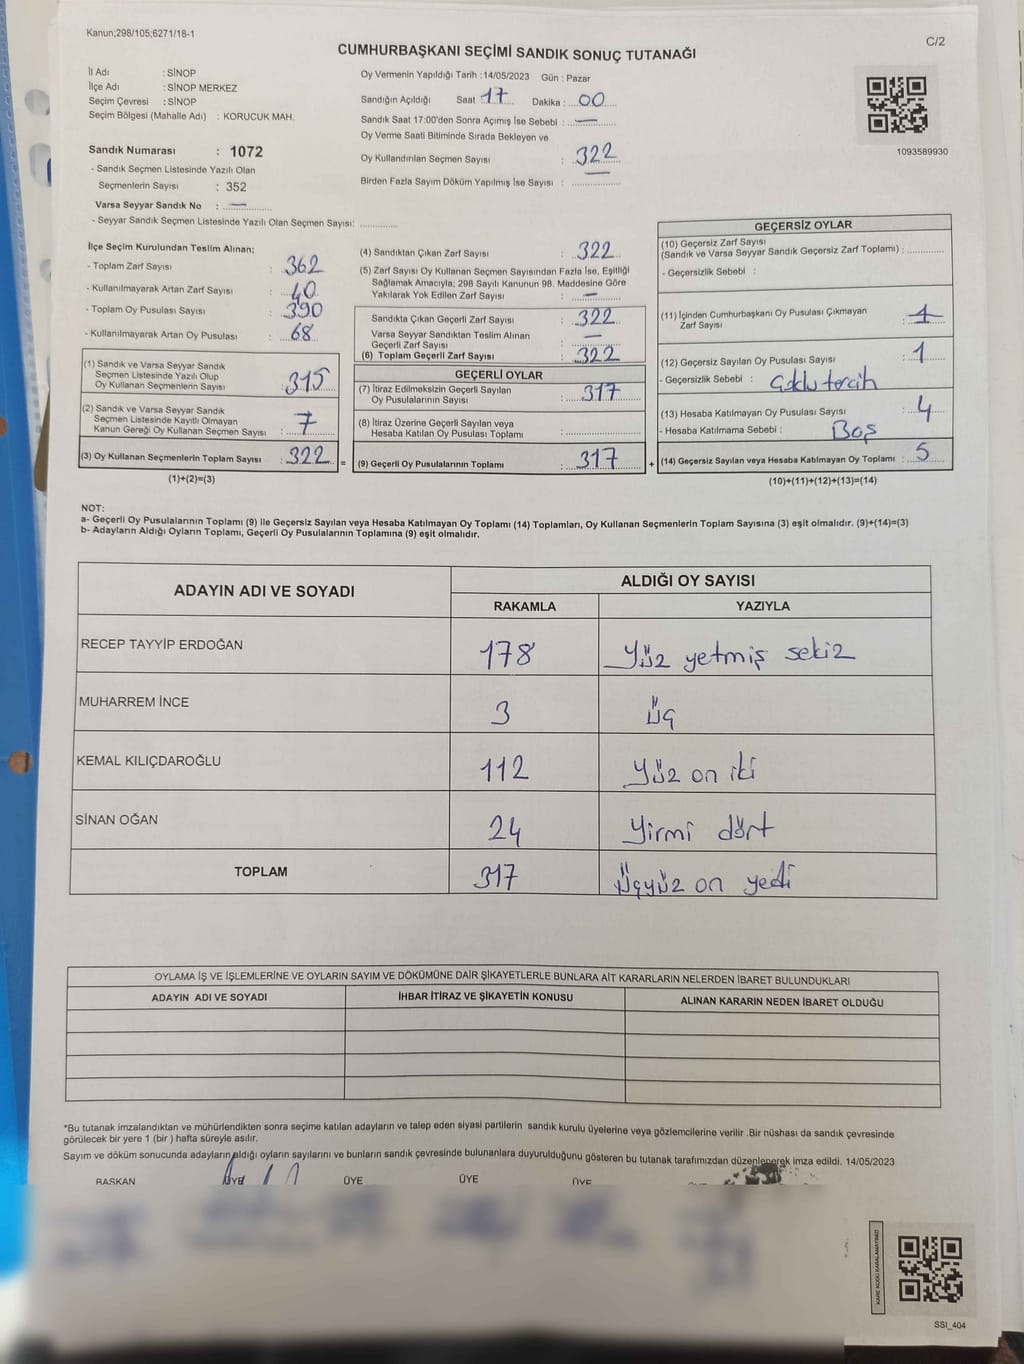 Kanun;298/105;6271/18-1
C/2
CUMHURBAŞKANI SEÇİMİ SANDIK SONUÇ TUTANAĞI
İl Adı : SİNOP
İlçe Adı : SİNOP MERKEZ
Seçim Çevresi : SİNOP
Seçim Bölgesi (Mahalle Adı) : KORUCUK MAH.
Sandık Numarası : 1072
- Sandık Seçmen Listesinde Yazılı Olan
Seçmenlerin Sayısı : 352
Varsa Seyyar Sandık No : —
- Seyyar Sandık Seçmen Listesinde Yazılı Olan Seçmen Sayısı:
Oy Vermenin Yapıldığı Tarih :14/05/2023 Gün : Pazar
Sandığın Açıldığı Saat 17 Dakika : 00
Sandık Saat 17:00'den Sonra Açımış İse Sebebi : —
Oy Verme Saati Bitiminde Sırada Bekleyen ve
Oy Kullandırılan Seçmen Sayısı : 322
Birden Fazla Sayım Döküm Yapılmış İse Sayısı : —
1093589930
İlçe Seçim Kurulundan Teslim Alınan;
- Toplam Zarf Sayısı : 362
- Kullanılmayarak Artan Zarf Sayısı : 40
- Toplam Oy Pusulası Sayısı : 390
- Kullanılmayarak Artan Oy Pusulası : 68
(1) Sandık ve Varsa Seyyar Sandık
Seçmen Listesinde Yazılı Olup
Oy Kullanan Seçmenlerin Sayısı : 315
(2) Sandık ve Varsa Seyyar Sandık
Seçmen Listesinde Kayıtlı Olmayan
Kanun Gereği Oy Kullanan Seçmen Sayısı : 7
(3) Oy Kullanan Seçmenlerin Toplam Sayısı : 322
(1)+(2)=(3)
(4) Sandıktan Çıkan Zarf Sayısı : 322
(5) Zarf Sayısı Oy Kullanan Seçmen Sayısından Fazla İse, Eşitliği
Sağlamak Amacıyla; 298 Sayılı Kanunun 98. Maddesine Göre
Yakılarak Yok Edilen Zarf Sayısı : —
Sandıkta Çıkan Geçerli Zarf Sayısı : 322
Varsa Seyyar Sandıktan Teslim Alınan
Geçerli Zarf Sayısı : —
(6) Toplam Geçerli Zarf Sayısı : 322
GEÇERLİ OYLAR
(7) İtiraz Edilmeksizin Geçerli Sayılan
Oy Pusulalarının Sayısı : 317
(8) İtiraz Üzerine Geçerli Sayılan veya
Hesaba Katılan Oy Pusulası Toplamı :
= (9) Geçerli Oy Pusulalarının Toplamı : 317
GEÇERSİZ OYLAR
(10) Geçersiz Zarf Sayısı
(Sandık ve Varsa Seyyar Sandık Geçersiz Zarf Toplamı) :
- Geçersizlik Sebebi :
(11) İçinden Cumhurbaşkanı Oy Pusulası Çıkmayan
Zarf Sayısı :
(12) Geçersiz Sayılan Oy Pusulası Sayısı : 1
- Geçersizlik Sebebi : Çoklu tercih
(13) Hesaba Katılmayan Oy Pusulası Sayısı : 4
- Hesaba Katılmama Sebebi : Boş
+ (14) Geçersiz Sayılan veya Hesaba Katılmayan Oy Toplamı : 5
(10)+(11)+(12)+(13)=(14)
NOT:
a- Geçerli Oy Pusulalarının Toplamı (9) ile Geçersiz Sayılan veya Hesaba Katılmayan Oy Toplamı (14) Toplamları, Oy Kullanan Seçmenlerin Toplam Sayısına (3) eşit olmalıdır. (9)+(14)=(3)
b- Adayların Aldığı Oyların Toplamı, Geçerli Oy Pusulalarının Toplamına (9) eşit olmalıdır.
ADAYIN ADI VE SOYADI
ALDIĞI OY SAYISI
RAKAMLA YAZIYLA
RECEP TAYYİP ERDOĞAN 178 Yüz yetmiş sekiz
MUHARREM İNCE 3 Üç
KEMAL KILIÇDAROĞLU 112 Yüz on iki
SİNAN OĞAN 24 Yirmi dört
TOPLAM 317 Üçyüz on yedi
OYLAMA İŞ VE İŞLEMLERİNE VE OYLARIN SAYIM VE DÖKÜMÜNE DAİR ŞİKAYETLERLE BUNLARA AİT KARARLARIN NELERDEN İBARET BULUNDUKLARI
ADAYIN ADI VE SOYADI İHBAR İTİRAZ VE ŞİKAYETİN KONUSU ALINAN KARARIN NEDEN İBARET OLDUĞU
*Bu tutanak imzalandıktan ve mühürlendikten sonra seçime katılan adayların ve talep eden siyasi partilerin sandık kurulu üyelerine veya gözlemcilerine verilir .Bir nüshası da sandık çevresinde
görülecek bir yere 1 (bir ) hafta süreyle asılır.
Sayım ve döküm sonucunda adayların aldığı oyların sayılarını ve bunların sandık çevresinde bulunanlara duyurulduğunu gösteren bu tutanak tarafımızdan düzenlenerek imza edildi. 14/05/2023
BAŞKAN ÜYE ÜYE ÜYE ÜYE
KARE KODU KARALAMAYINIZ!
SSI_404